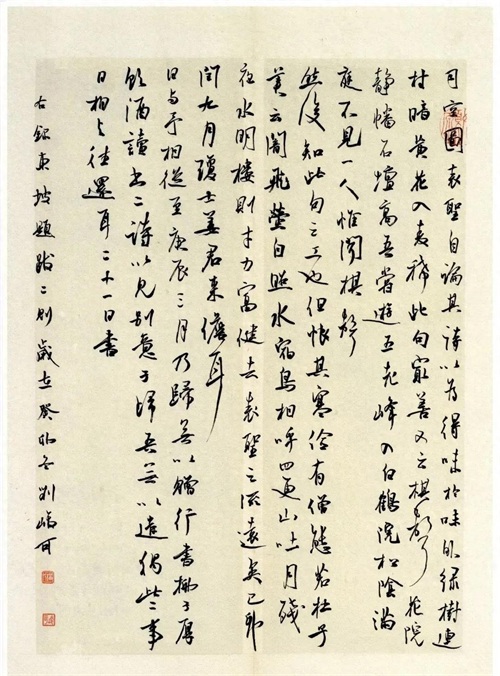 司空圖表聖自論其詩以為得味於味外綠樹連
村暗黃花入麥稀此句最善又云棋聲花院
靜幡石壇高吾嘗遊五老峰入白鶴院松陰滿
庭不見一人惟聞棋聲
然後知此句之工也但恨其寒儉有僧態若杜子
美云闇飛螢自照水宿鳥相呼四更山吐月殘
夜水明樓則才力富健去表聖之流遠矣己卯
閏九月瓊士姜君來儋耳
日與予相從至庚辰三月乃歸無以贈行書柳子厚
飲酒讀書二詩以見別意子歸吾無以遣獨此二事
日相與往還耳二十一日書
右錄東坡題跋二則歲在癸卯冬刘